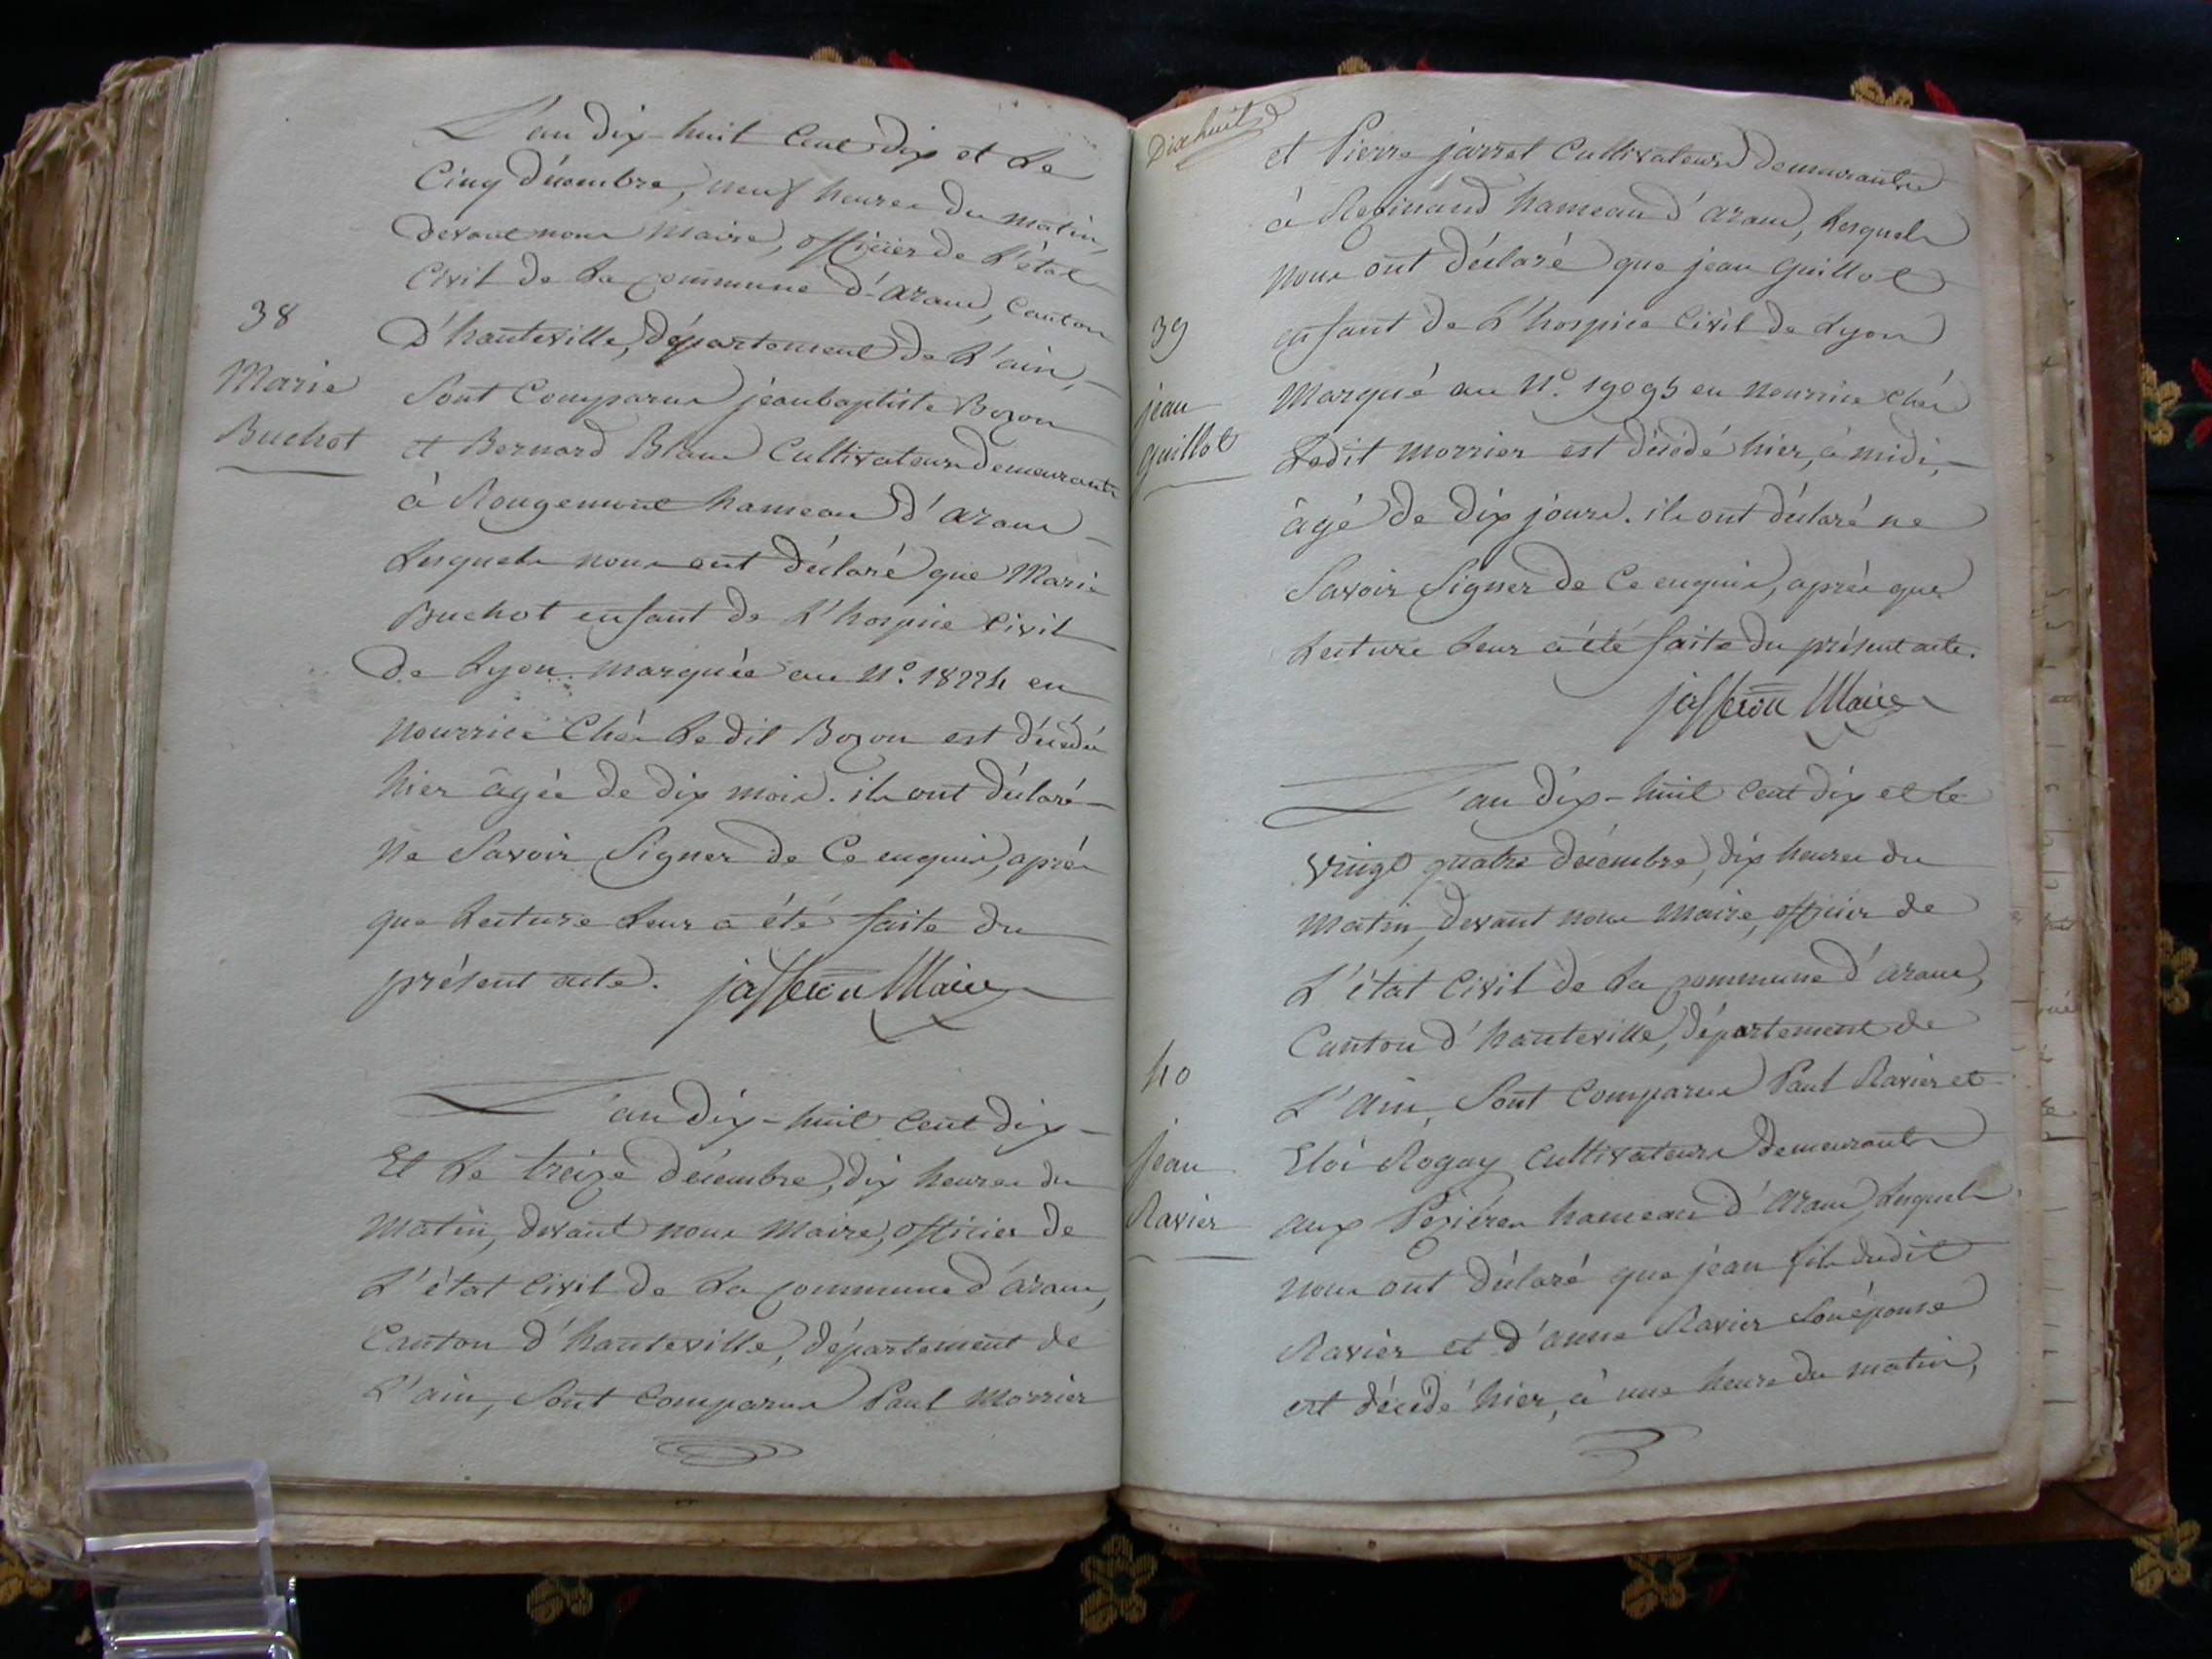 L'an dix-huit cent dix et le
cinq décembre, neuf heures du matin,
devant nous Maire, officier de l'état
civil de la commune d'aranc, canton
d'hauteville, département de l'ain,
38
Marie
Buchot
sont comparus jeanbaptiste Bozon
et Bernard Blanc cultivateurs demeurants
à Rougemont hameau d'aranc
lesquels nous ont déclaré que Marie
Buchot enfant de l'hospice civil
de Lyon marquée au N°. 18224 en
nourrice chés ledit Bozon est décédée
hier âgée de dix mois. ils ont déclaré
ne savoir signer de ce enquis, après
que lecture leur a été faite du
présent acte. jasseron Maire
L'an dix-huit cent dix
Et le treize décembre, dix heures du
matin, devant nous Maire, officier de
l'état civil de la commune d'aranc,
canton d'hauteville, département de
l'ain, sont comparus Paul Morrier
Dixhuit
et Pierre jarret cultivateurs demeurants
à Resinand hameau d'aranc, lesquels
nous ont déclaré que jean guillot
39
jean
guillot
enfant de l'hospice civil de Lyon
marqué au N°. 19095 en nourrice chés
ledit morrier est décédé hier, à midi,
âgé de dix jours. ils ont déclaré ne
savoir signer de ce enquis, après que
lecture leur a été faite du présent acte.
jasseron Maire
L'an dix-huit cent dix et le
vingt quatre décembre, dix heures du
matin, devant nous maire, officier de
l'état civil de la commune d'aranc,
canton d'hauteville, département de
40
jean
Ravier
l'ain, sont comparus Paul Ravier et
Eloi Rogay cultivateurs demeurants
aux Pézières hameau d'aranc, lesquels
nous ont déclaré que jean fils dudit
Ravier et d'anne Ravier son épouse
est décédé hier, à une heure du matin,